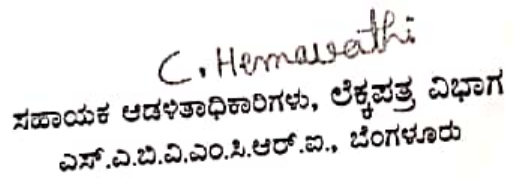 C. Hemavathi
ಸಹಾಯಕ ಆಡಳಿತಾಧಿಕಾರಿಗಳು, ಲೆಕ್ಕಪತ್ರ ವಿಭಾಗ
ಎಸ್.ಎ.ಬಿ.ವಿ.ಎಂ.ಸಿ.ಆರ್.ಐ., ಬೆಂಗಳೂರು